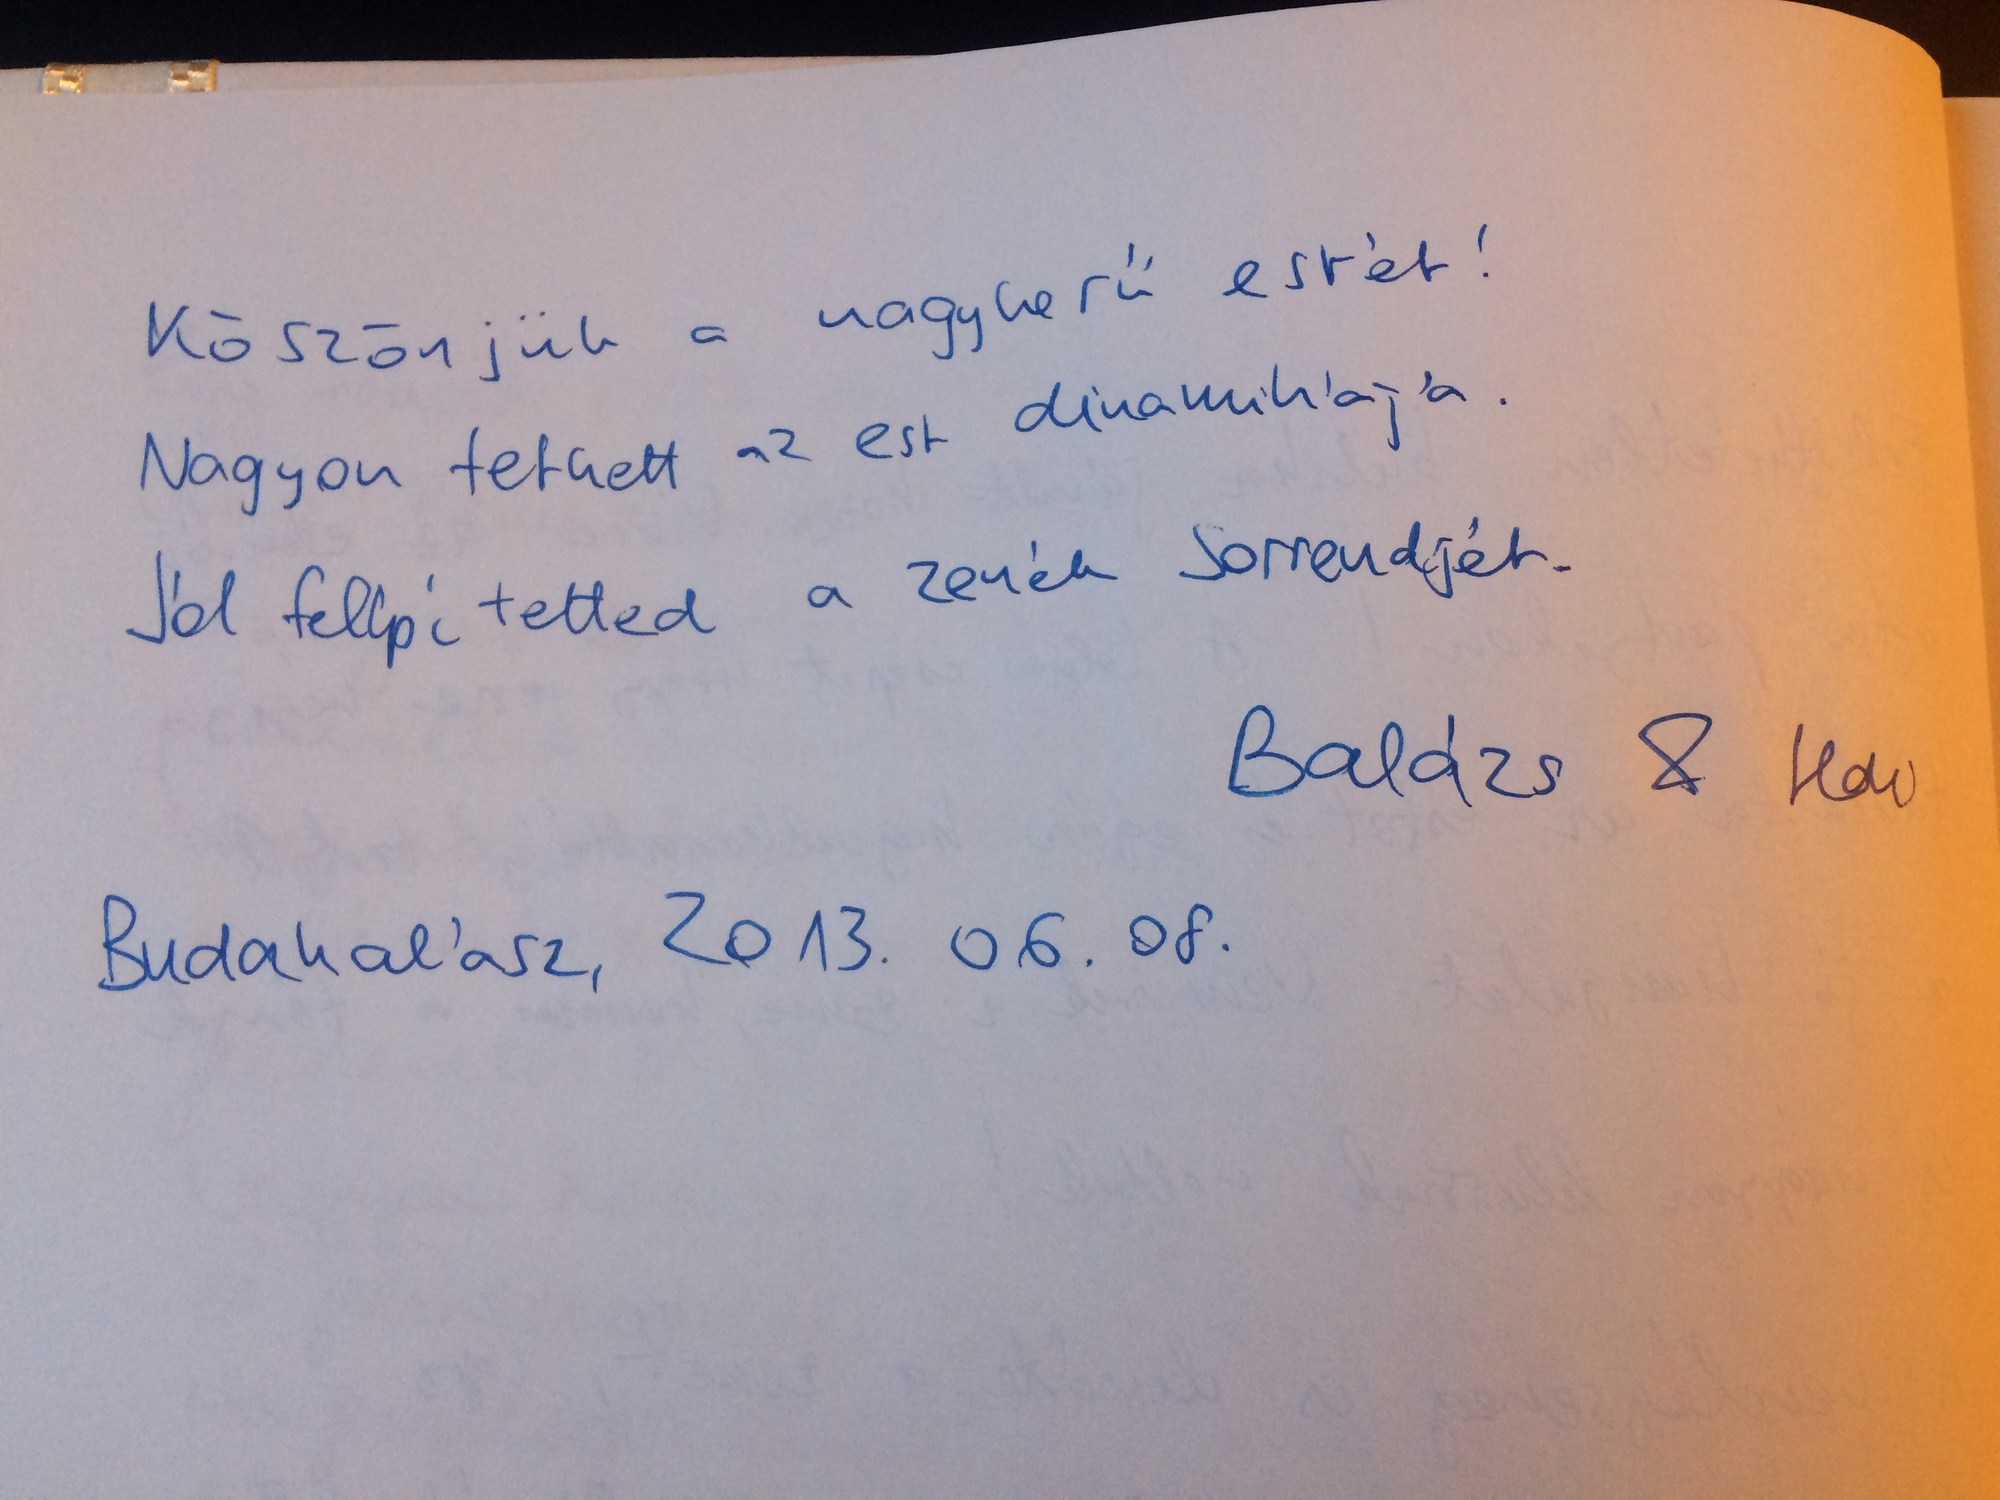 Köszönjük a nagyszerű estét!
Nagyon tetszett az est dinamikája.
Jól felépítetted a zenék sorrendjét.
Balázs &
Budakalász, 2013. 06. 08.